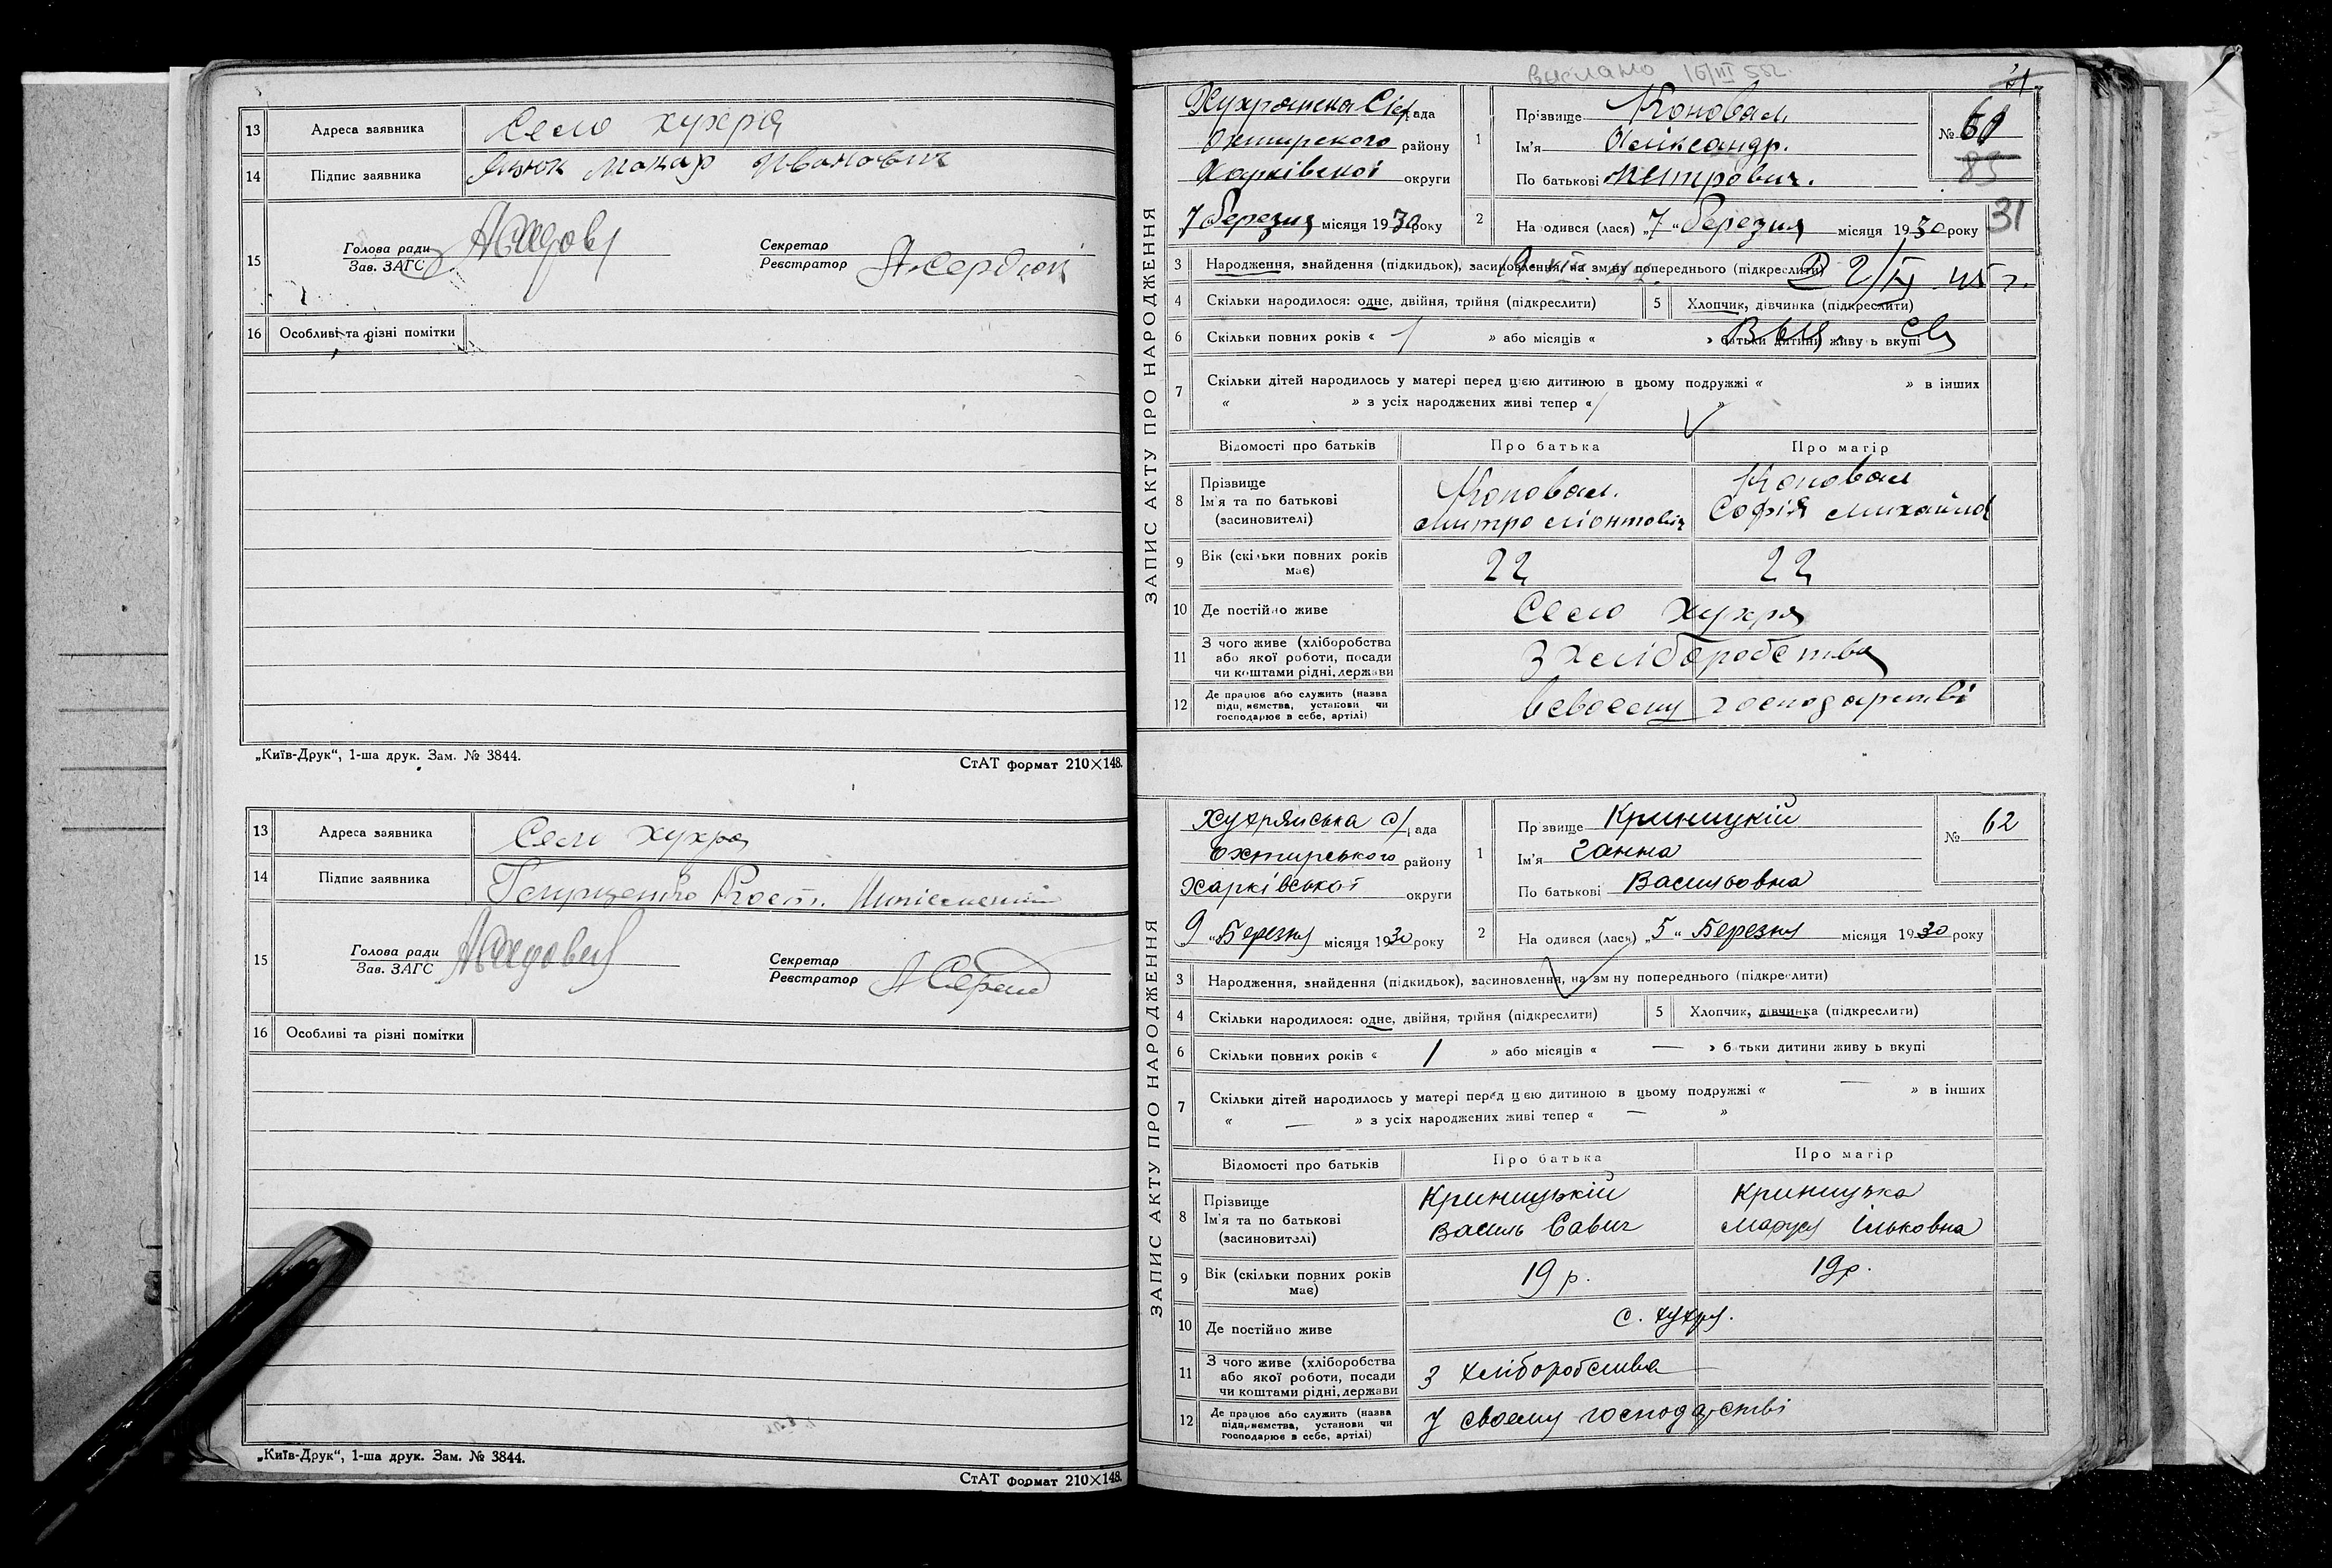 13 Адреса заявника Село Хухря
14 Підпис заявника Іванович
15 Голова ради Зав. ЗАГС Секретар Реєстратор А Сердюк
16 Особливі та різні помітки
„Київ-Друк“, 1-ша друк. Зам. № 3844.
СтАТ формат 210×148.
13 Адреса заявника Село Хухря
14 Підпис заявника
15 Голова ради Зав. ЗАГС Секретар Реєстратор
16 Особливі та різні помітки
„Київ-Друк“, 1-ша друк. Зам. № 3844.
СтАТ формат 210×148.
выслано 16/III 55г.
ЗАПИС АКТУ ПРО НАРОДЖЕННЯ
Хухрянска Сіл рада
Охтирского району
Харківскої округи
7 березня місяця 1930 року
1 Прізвище Коновал
Ім'я Олександр.
По батькові Митрович.
№ 61
85
31
2 Народився (лася) „7“ березня місяця 1930 року
3 Народження, знайдення (підкидьок), засиновлення, на зміну попереднього (підкреслити)
4 Скільки народилося: одне, двійня, трійня (підкреслити)
5 Хлопчик, дівчинка (підкреслити)
6 Скільки повних років « 1 » або місяців « » батьки дитини живуть вкупі
7 Скільки дітей народилось у матері перед цією дитиною в цьому подружжі « » в інших
« » з усіх народжених живі тепер « »
Відомості про батьків Про батька Про матір
8 Прізвище Ім'я та по батькові (засиновителі)
Коновал. Митро Лєонтович
Коновал Софія Михайло
9 Вік (скільки повних років має) 22 22
10 Де постійно живе Село Хухря
11 З чого живе (хліборобства або якої роботи, посади чи коштами рідні, держави З хліборобства
12 Де працює або служить (назва підприємства, установи чи господарює в себе, артілі) Всвоєму господарстві
ЗАПИС АКТУ ПРО НАРОДЖЕННЯ
Хухрянська с/рада
Охтирського району
Харківської округи
9 „Березня місяця 1930 року
1 Прізвище Криницкій
Ім'я Ганна
По батькові Васильовна
№ 62
2 Народився (лася) „5“ Березня місяця 1930 року
3 Народження, знайдення (підкидьок), засиновлення, на зміну попереднього (підкреслити)
4 Скільки народилося: одне, двійня, трійня (підкреслити)
5 Хлопчик, дівчинка (підкреслити)
6 Скільки повних років « 1 » або місяців « — » батьки дитини живуть вкупі
7 Скільки дітей народилось у матері перед цією дитиною в цьому подружжі « — » в інших
« — » з усіх народжених живі тепер « — »
Відомості про батьків Про батька Про матір
8 Прізвище Ім'я та по батькові (засиновителі)
Криницькій Василь Савич
Криницька Маруся Ільковна
9 Вік (скільки повних років має) 19 р. 19 р.
10 Де постійно живе с. Хухря.
11 З чого живе (хліборобства або якої роботи, посади чи коштами рідні, держави З хліборобства
12 Де працює або служить (назва підприємства, установи чи господарює в себе, артілі) У своєму господарстві